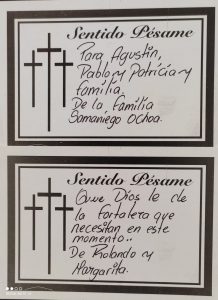 Sentido Pésame
Para Agustin,
Pablo y Patricia y
familia.
De la Familia
Samaniego Ochoa.
Sentido Pésame
Que Dios le de
la fortaleza que
necesitan en este
momento..
De Rolando y
Margarita.